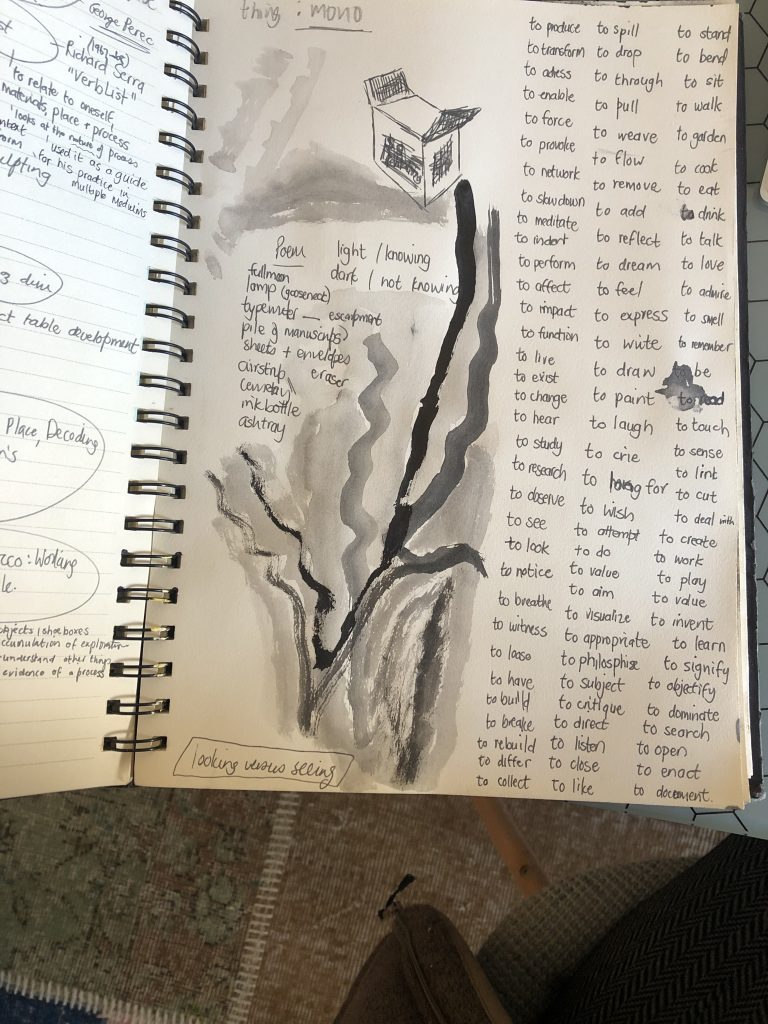 George Perec
(1967-68)
Richard Serra
"Verb List"
to relate to oneself,
materials, place + process
looks at the nature of process
used it as a guide
for his practice in
multiple mediums
3 dim
ct table development
Place, Decoding
n's
cco: Working
le.
objects / shoe boxes
ccumulation of exploration
understand other things
evidence of a process
thing : mono
Poem
light / knowing
dark / not knowing
fullmoon
lamp (gooseneck)
typewriter — escarpment
pile of manuscripts
sheets + envelopes
airstrip
eraser
cemetery
ink bottle
ashtray
looking versus seeing
to produce
to transform
to adress
to enable
to force
to provoke
to network
to slow down
to meditate
to indent
to perform
to affect
to impact
to function
to live
to exist
to change
to hear
to study
to research
to observe
to see
to look
to notice
to breathe
to witness
to loose
to have
to build
to breake
to rebuild
to differ
to collect
to spill
to drop
to through
to pull
to weave
to flow
to remove
to add
to reflect
to dream
to feel
to express
to write
to draw
to paint
to laugh
to crie
to long for
to wish
to attempt
to do
to value
to aim
to visualize
to appropriate
to philosphise
to subject
to critique
to direct
to listen
to close
to like
to stand
to bend
to sit
to walk
to garden
to cook
to eat
to drink
to talk
to love
to admire
to smell
to remember
be
to read
to touch
to sense
to lint
to cut
to deal with
to create
to work
to play
to value
to invent
to learn
to signify
to objectify
to dominate
to search
to open
to enact
to document.